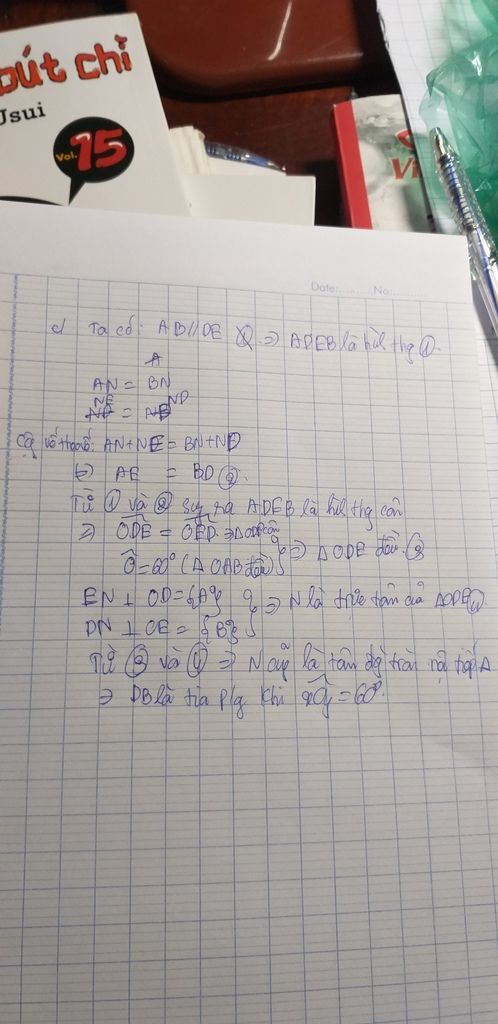 bút chì
Usui
Vol. 15
Vi
Date: No:
c/ Ta có: AB // DE => ADEB là hìh thg ①
AN = BN
NE = ND
Cộng vế theo vế: AN + NE = BN + ND
(=) AE = BD ②.
Từ ① và ② suy ra ADEB là hìh thg cân
=> ODE = OED => Δ ODE cân
Ô = 60° (Δ OAB đều) } => Δ ODE đều. ③
EN ⊥ OD = {A}
DN ⊥ OE = {B} } => N là trực tâm của ΔODE ④
Từ ③ và ④ => N cũg là tâm đg tròn nội tiếp Δ
=> DB là tia p/g khi xOy = 60°.